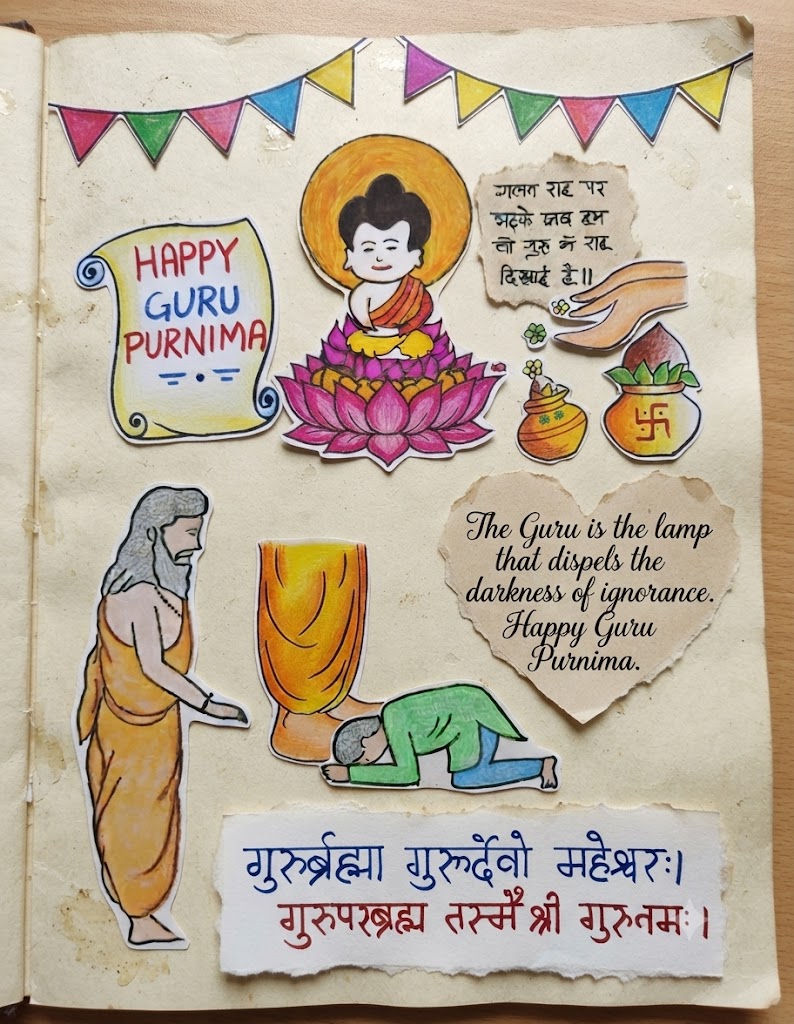 HAPPY
GURU
PURNIMA
गलत राह पर
भटके जब हम
तो गुरु ने राह
दिखाई है।।
The Guru is the lamp
that dispels the
darkness of ignorance.
Happy Guru
Purnima.
गुरुर्ब्रह्मा गुरुर्देवो महेश्वरः।
गुरुपरब्रह्म तस्मै श्री गुरुतमः।